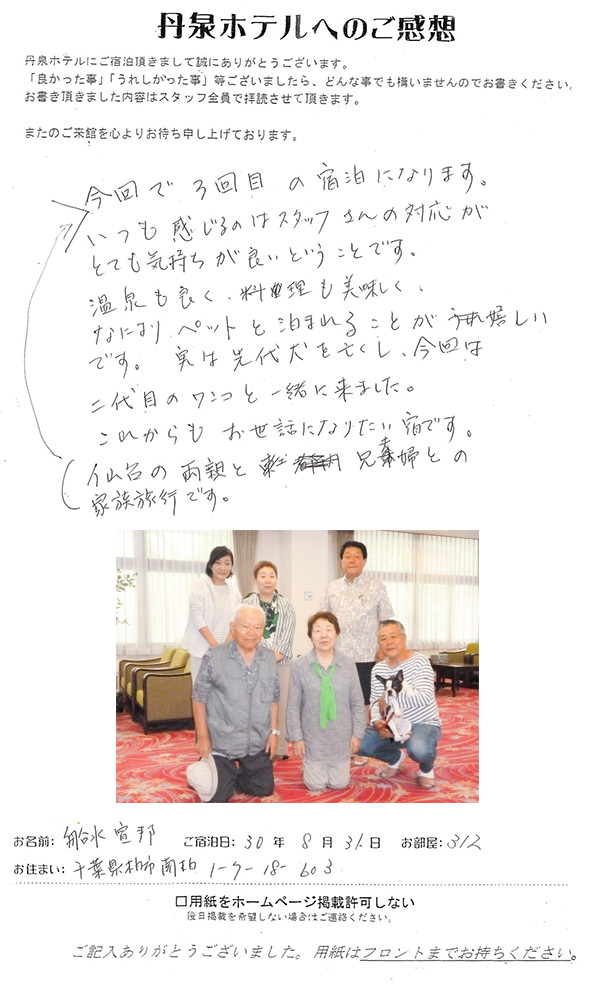 丹泉ホテルへのご感想
丹泉ホテルにご宿泊頂きまして誠にありがとうございます。
「良かった事」「うれしかった事」等ございましたら、どんな事でも構いませんのでお書きください。
お書き頂きました内容はスタッフ全員で拝読させて頂きます。
またのご来館を心よりお待ち申し上げております。
今回で3回目の宿泊になります。
いつも感じるのはスタッフさんの対応が
とても気持ちが良いということです。
温泉も良く、料理も美味しく、
なにより、ペットと泊まれることが嬉しい
です。実は先代犬を亡くし、今回は
二代目のワンコと一緒に来ました。
これからもお世話になりたい宿です。
仙台の両親と 兄夫婦との
家族旅行です。
お名前: 宣邦 ご宿泊日: 30 年 8 月 31 日 お部屋: 312
お住まい: 千葉県柏市南柏 1-7-18-603
□用紙をホームページ掲載許可しない
後日掲載を希望しない場合はご連絡ください。
ご記入ありがとうございました。用紙はフロントまでお持ちください。